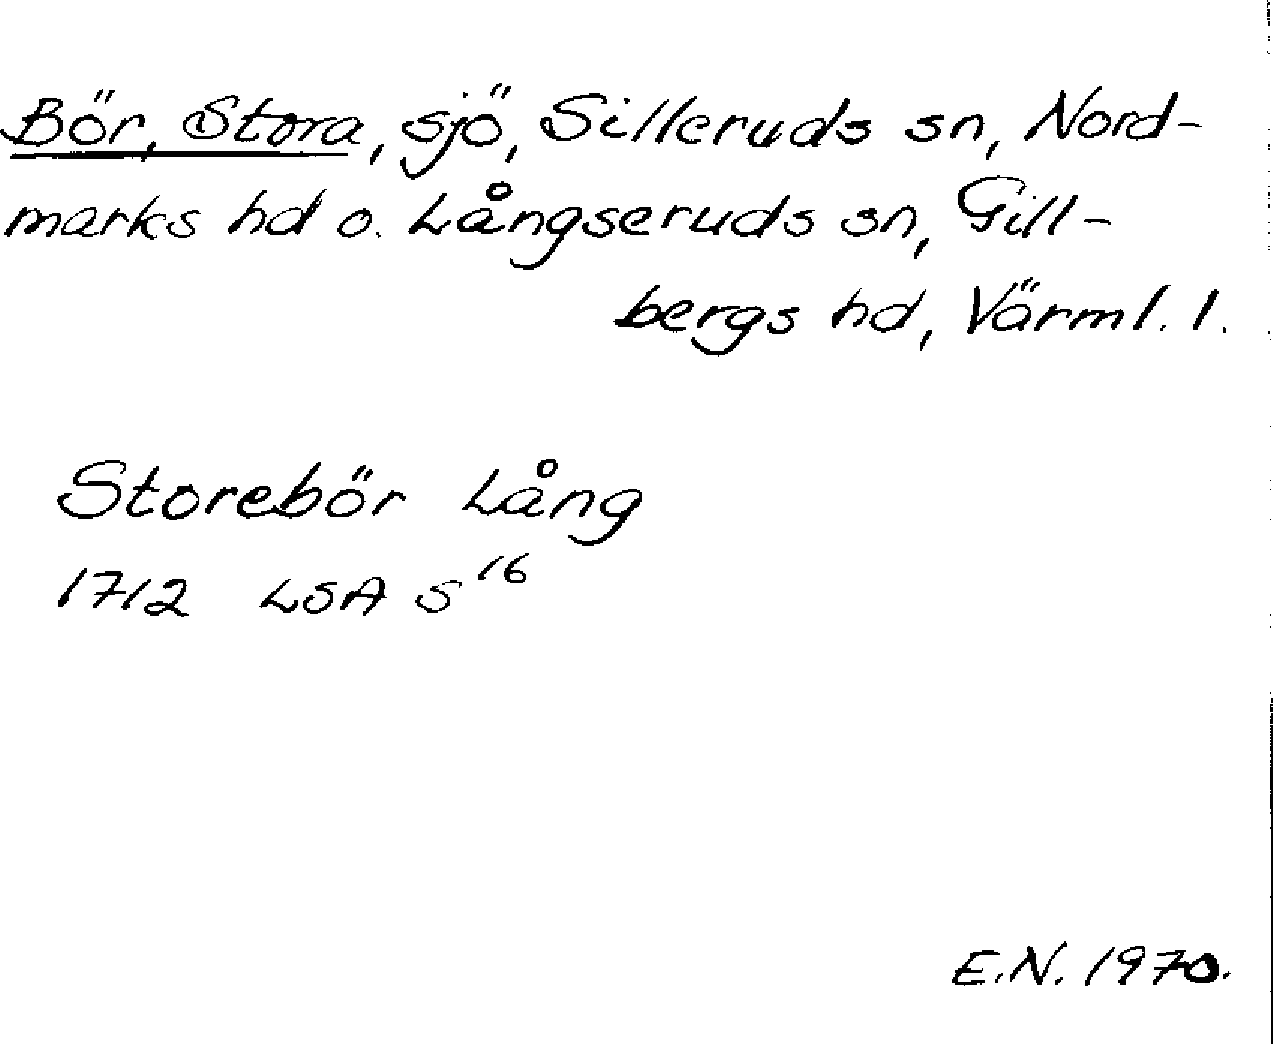 Bör, Stora, sjö, Silleruds sn, Nord-
marks hd o. Långseruds sn, Gill-
bergs hd, Värml. l.
Storebör Lång
1712 LSA S¹⁶
E.N. 1970.